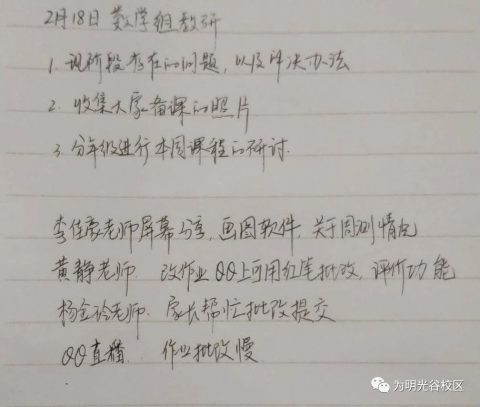 2月18日 数学组教研
1. 现阶段存在的问题，以及解决办法
2. 收集大家备课的照片
3. 分年级进行本周课程的研讨.
李佳蒙老师屏幕分享，画图软件，关于周测情况
黄静老师. 改作业QQ上可用红笔批改，评价功能
杨金玲老师. 家长帮忙批改提交
QQ直播. 作业批改慢
为明光谷校区